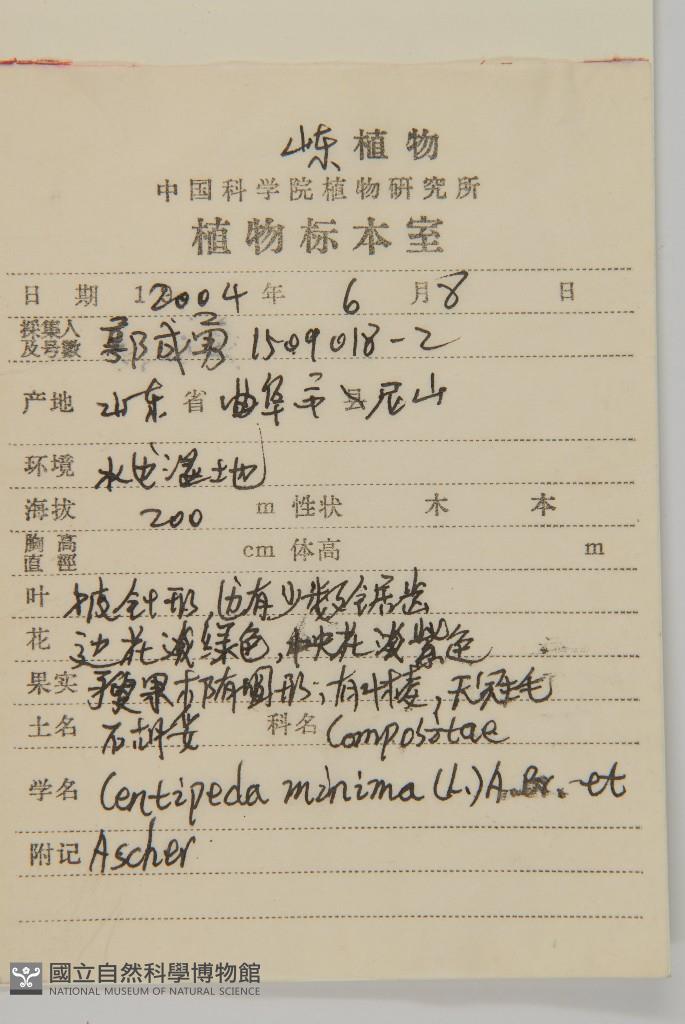 山东植物
中国科学院植物研究所
植物标本室
日期 2004年6月8日
採集人及号數 郭成勇 1509018-2
产地 山东省曲阜市县尼山
环境 水边湿土地
海拔 200 m 性状 木 本
胸高直徑 cm 体高 m
叶 披针形,边有少数锯齿
花 边花淡绿色,中央花淡紫色
果实 瘦果椭圆形,有4棱,无冠毛
土名 石胡荽 科名 Compositae
学名 Centipeda minima (L.) A. Br. et
附记 Ascher
國立自然科學博物館
NATIONAL MUSEUM OF NATURAL SCIENCE